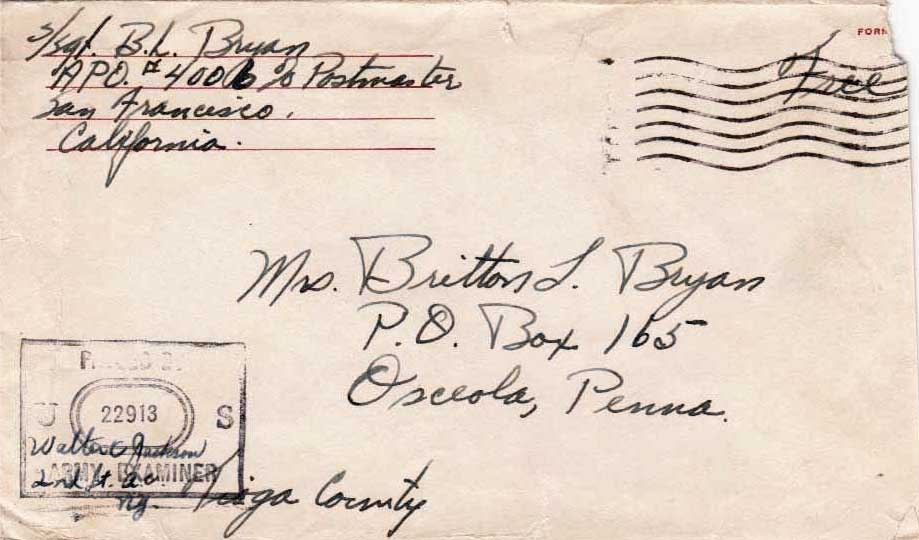 S/Sgt. B.L. Bryan
APO. # 4006 c/o Postmaster
San Francisco.
California.
FORM
Free
Mrs. Britton L. Bryan
P.O. Box 165
Osceola, Penna.
Tioga County
U 22913 S
ARMY EXAMINER
Walter Jackson
2nd Lt. a.c.